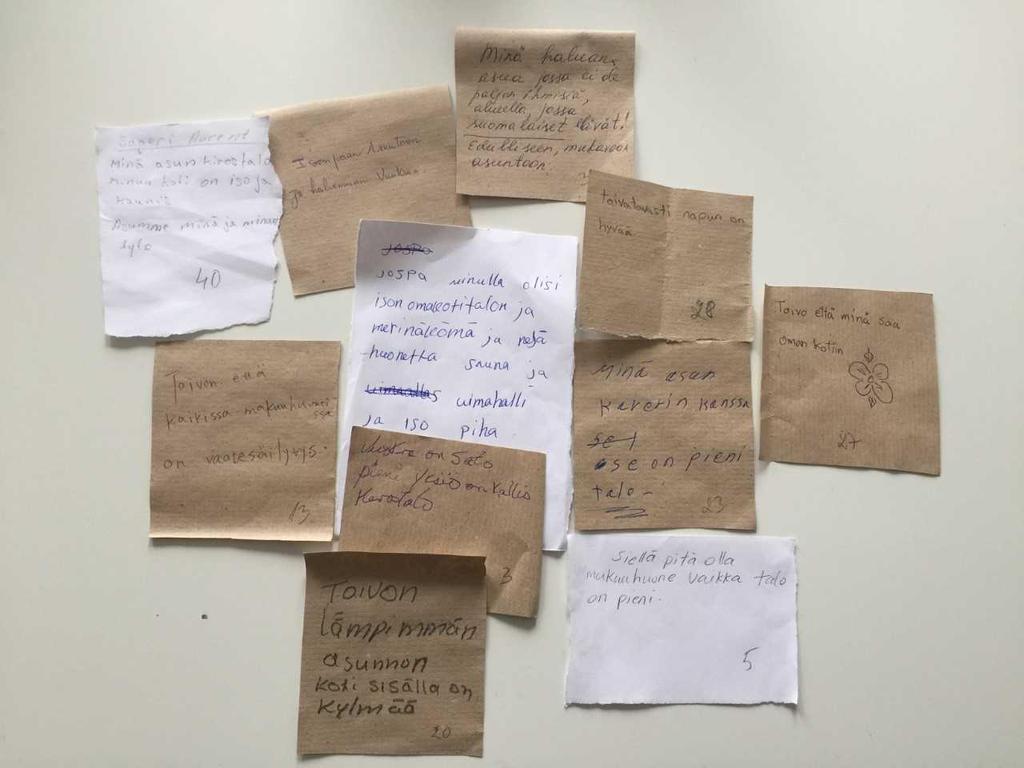 Minä haluan
asua jossa ei ole
paljon ihmisiä,
alueella, jossa
suomalaiset elävät!
Edulliseen, mukavaan
asuntoon.
Minä asun kerostalo
minun koti on iso ja
kaunis
Asumme minä ja minun
tylo
40
Isompaan asuntoon
ja halvemman vuokra.
toivotavasti napuri on
hyvää
28
JOSPO
JOSPA minulla olisi
ison omakotitalon ja
merinäkömä ja neljä
huonetta sauna ja
uimaallas uimahalli
ja iso piha.
Toivo että minä saa
oman kotiin
27
Toivon että
kaikissa makuuhuoneissa
on vaatesäilytys.
13
Minä asun
kaverin kanssa
se on pieni
talo-
23
vuokra on Sato
pieni yksiö on kallis
Kerotalo
3
Siellä pitä olla
makuuhuone vaikka talo
on pieni.
5
Toivon
lämpimmän
asunnon
koti sisälla on
kylmää
20